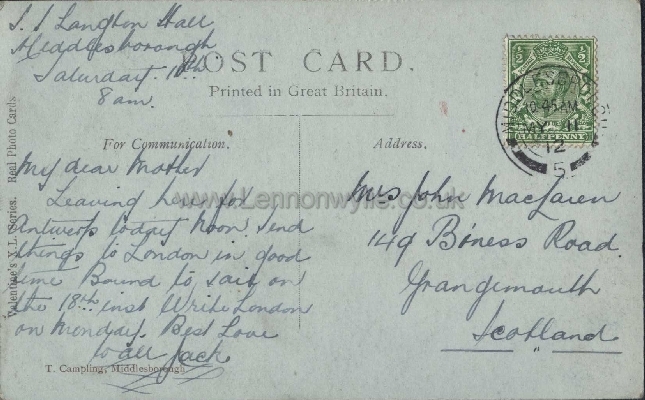 S.S Langton Hall
Middlesborough
Saturday. 10th
8 am.
POST CARD.
Printed in Great Britain.
For Communication.
Address.
½ ½
HALFPENNY
10.45 AM
MY 11
12
5
My dear Mother
Leaving here for
Antwerp today noon. Send
things to London in good
time Bound to sail on
the 18th inst Write London
on Monday. Best Love
to all Jack
Mrs John MacLaren
149 Bóness Road
Grangemouth
Scotland
www.Lennonwylie.co.uk
Valentine's X.L. Series. Real Photo Cards
T. Campling, Middlesborough